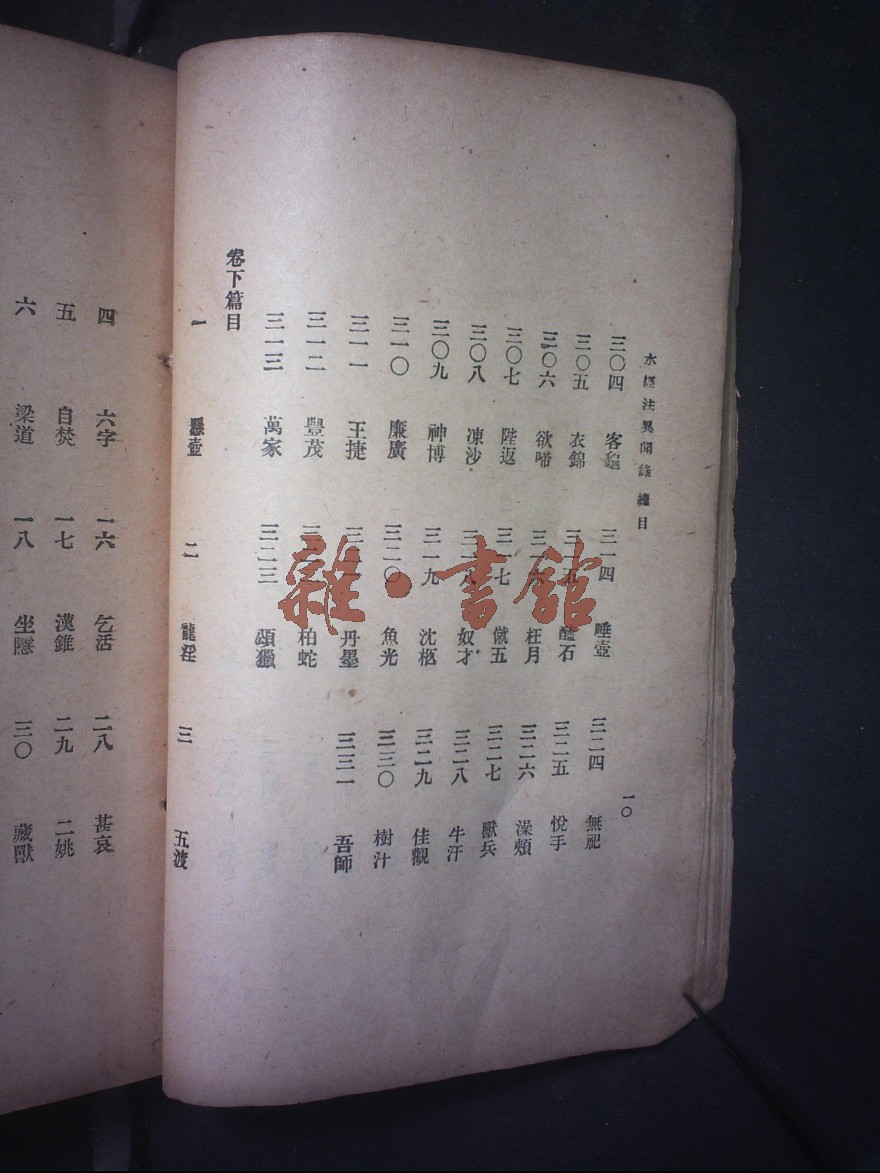 水經注異聞錄 總目
一〇
三〇四 客龜 三一四 唾壺 三二四 無祀
三〇五 衣錦 三一五 醯石 三二五 悅手
三〇六 欲啼 三一六 枉月 三二六 澡頰
三〇七 陛返 三一七 僦五 三二七 獸兵
三〇八 凍沙 三一八 奴才 三二八 牛汗
三〇九 神博 三一九 沈柩 三二九 佳觀
三一〇 廉廣 三二〇 魚光 三三〇 樹汁
三一一 王捷 三二一 丹墨 三三一 吾師
三一二 豐茂 三二二 柏蛇
三一三 萬家 三二三 頌獵
卷下篇目
一 懸壺 二 龍淫 三 五渡
四 六字 一六 乞活 二八 甚哀
五 自焚 一七 漢錐 二九 二姚
六 梁道 一八 坐隱 三〇 藏獸
雜·書館